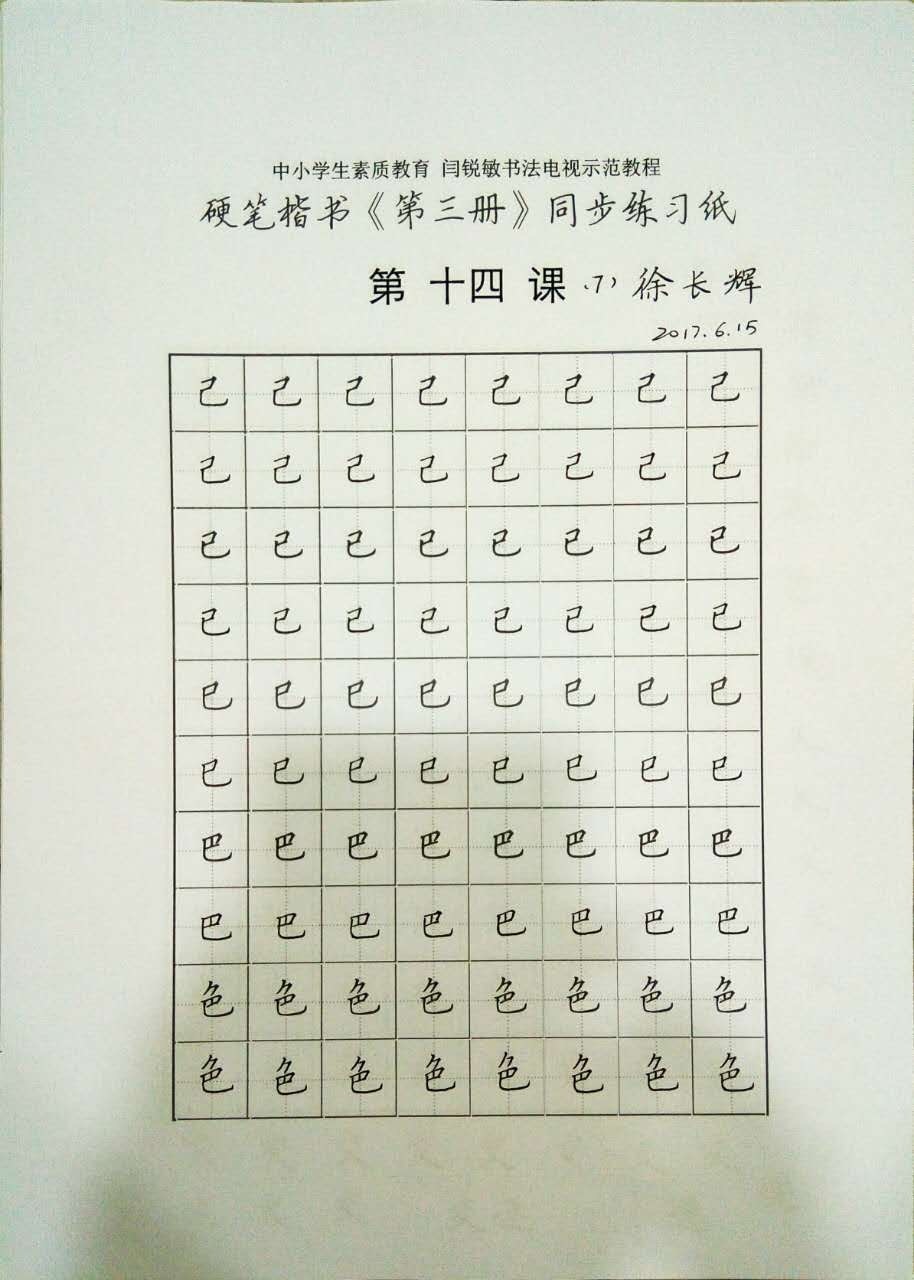 中小学生素质教育 闫锐敏书法电视示范教程
硬笔楷书《第三册》同步练习纸
第 十四 课 (7) 徐长辉
2017.6.15
己 己 己 己 己 己 己 己
己 己 己 己 己 己 己 己
已 已 已 已 已 已 已 已
已 已 已 已 已 已 已 已
巳 巳 巳 巳 巳 巳 巳 巳
巳 巳 巳 巳 巳 巳 巳 巳
巴 巴 巴 巴 巴 巴 巴 巴
巴 巴 巴 巴 巴 巴 巴 巴
色 色 色 色 色 色 色 色
色 色 色 色 色 色 色 色